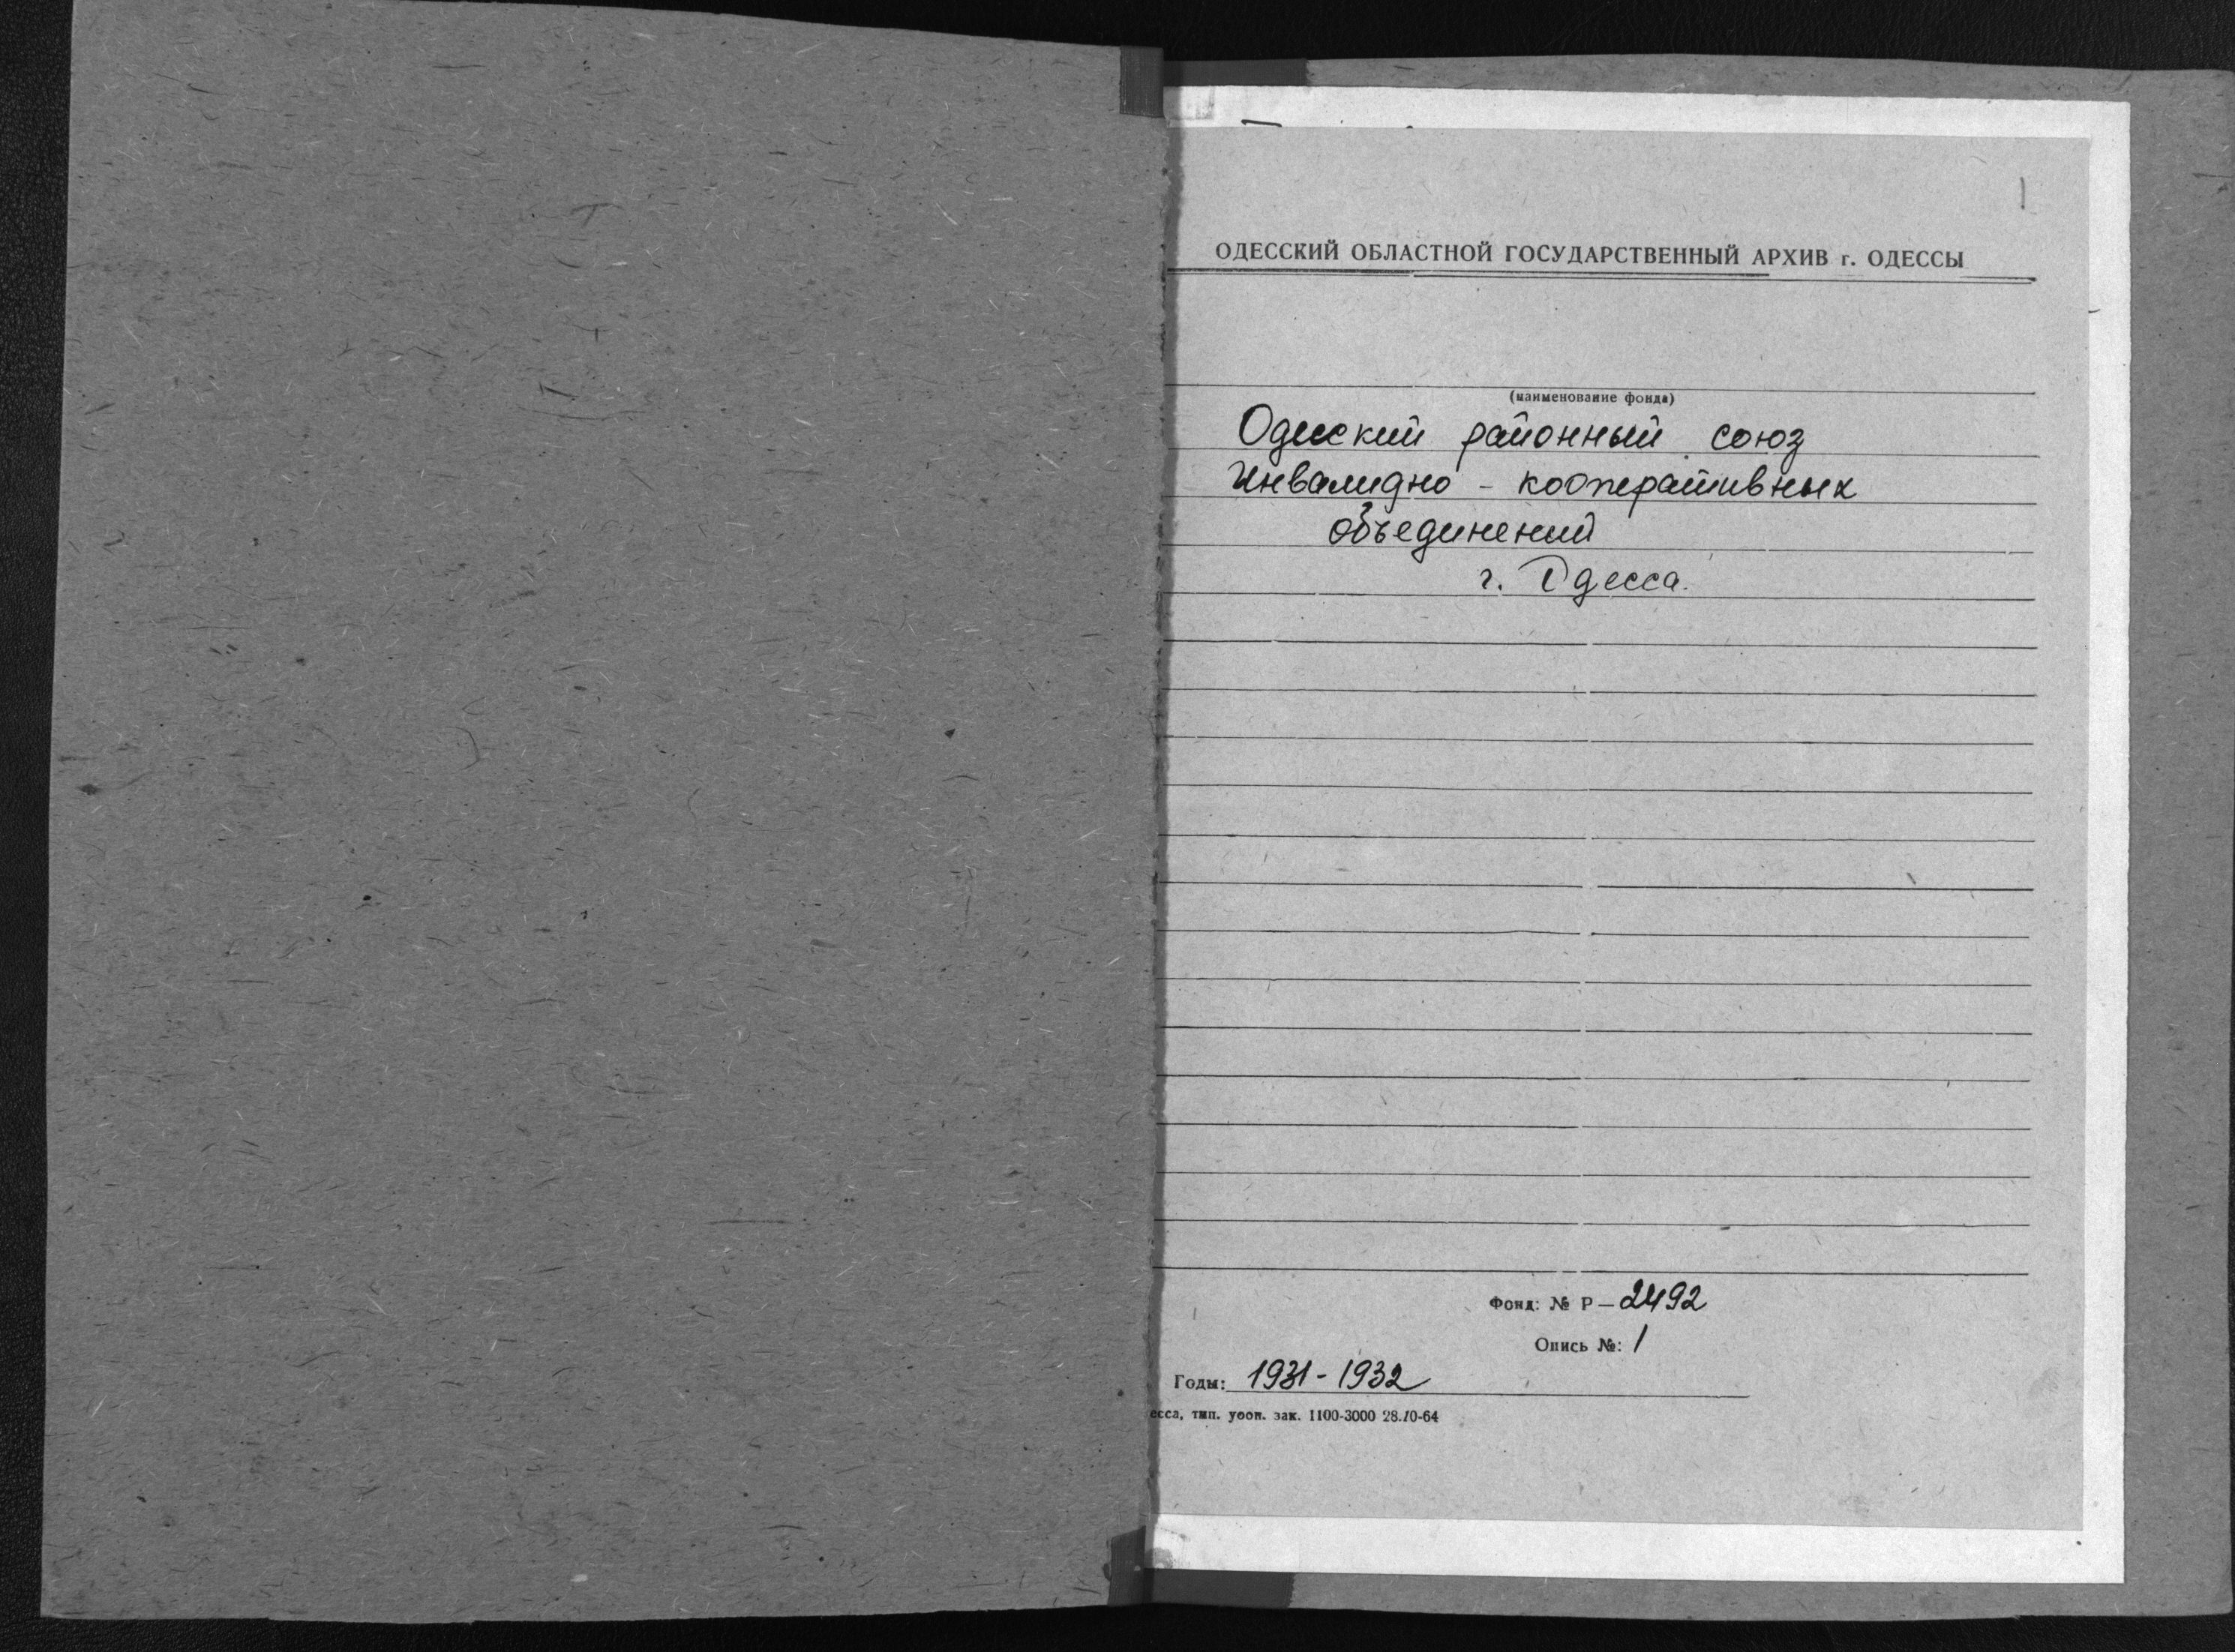 1
ОДЕССКИЙ ОБЛАСТНОЙ ГОСУДАРСТВЕННЫЙ АРХИВ г. ОДЕССЫ
(наименование фонда)
Одесский районный союз
Инвалидно - кооперативных
объединений
г. Одесса.
Фонд: № Р — 2492
Опись №: 1
Годы: 1931 - 1932
есса, тип. уооп. зак. 1100-3000 28.10-64